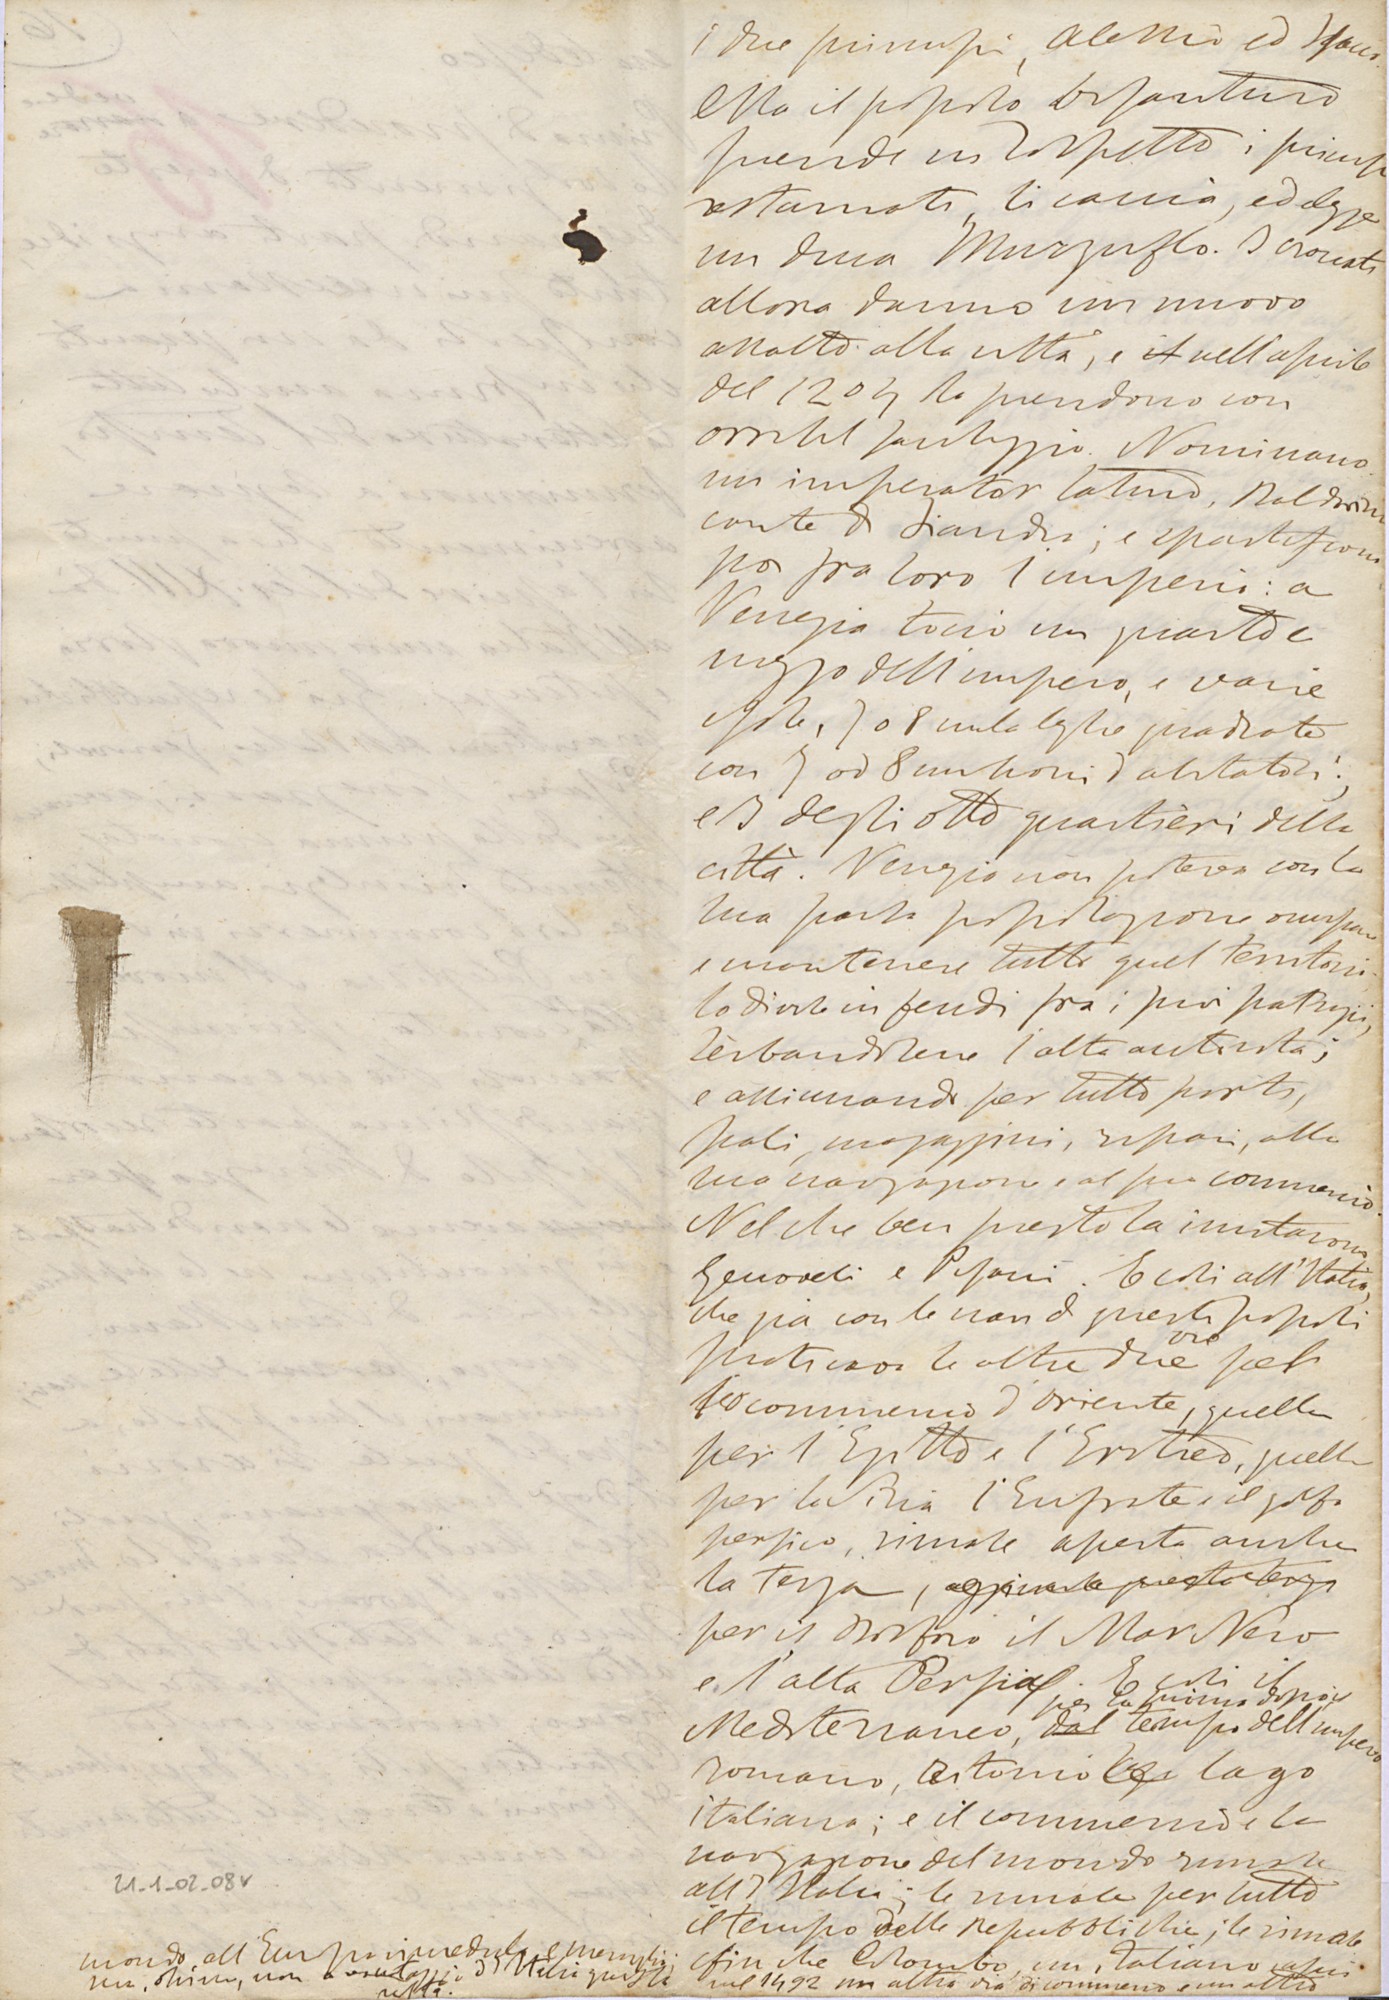 i due principi, Alessio ed Isacco.
Ma il popolo bisantino
prende in sospetto i principi
restaurati, li caccia, ed elegge
un duca Murzuflo. I crociati
allora danno un nuovo
assalto alla città, e il nell'aprile
del 1204 la prendono con
orribil saccheggio. Nominano
un imperator latino, Baldovino
conte di Fiandra; e spartiscono
poi fra loro l'imperio: a
Venezia toccò un quarto e
mezzo dell'impero, e varie
isole, 7 o 8 mila leghe quadrate
con 7 od 8 milioni d'abitatori;
e 3 degli otto quartieri della
città. Venezia non poteva con la
sua popolazione occupare
e mantenere tutto quel territorio
lo divise in feudi fra i suoi patrizi,
serbandosene l'alta autorità;
e assicurando per tutto porti,
scali, magazzini, ripari, alla
sua navigazione e al suo commercio.
Nel che ben presto la imitarono
Genovesi e Pisani. E così all'Italia,
che già con le navi di questi popoli
praticava le altre due vie pel
commercio d'oriente, quella
per l'Egitto e l'Eritreo, quella
per la Siria l'Eufrate e il golfo
persico, rimase aperta anche
la terza, aggiunta questa terza
per il Bosforo il Mar Nero
e l'alta Persia. E così il
per la prima dopo
Mediterraneo, dal tempo dell'impero
romano, ritornò lago
italiano; e il commercio e la
navigazione del mondo rimase
all'Italia; le rimase per tutto
il tempo delle Repubbliche; le rimase
finche Colombo, un Italiano, aprì
nel 1492 un altra via di commercio e un altro
mondo all'Europa incredula e
ma, ohime, non a vantaggio d'Italia questa
volta.
21_1_02_08v